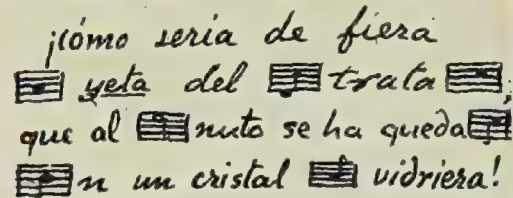 ¡cómo seria de fiera
yeta del trata ;
que al nuto se ha queda
n un cristal vidriera!